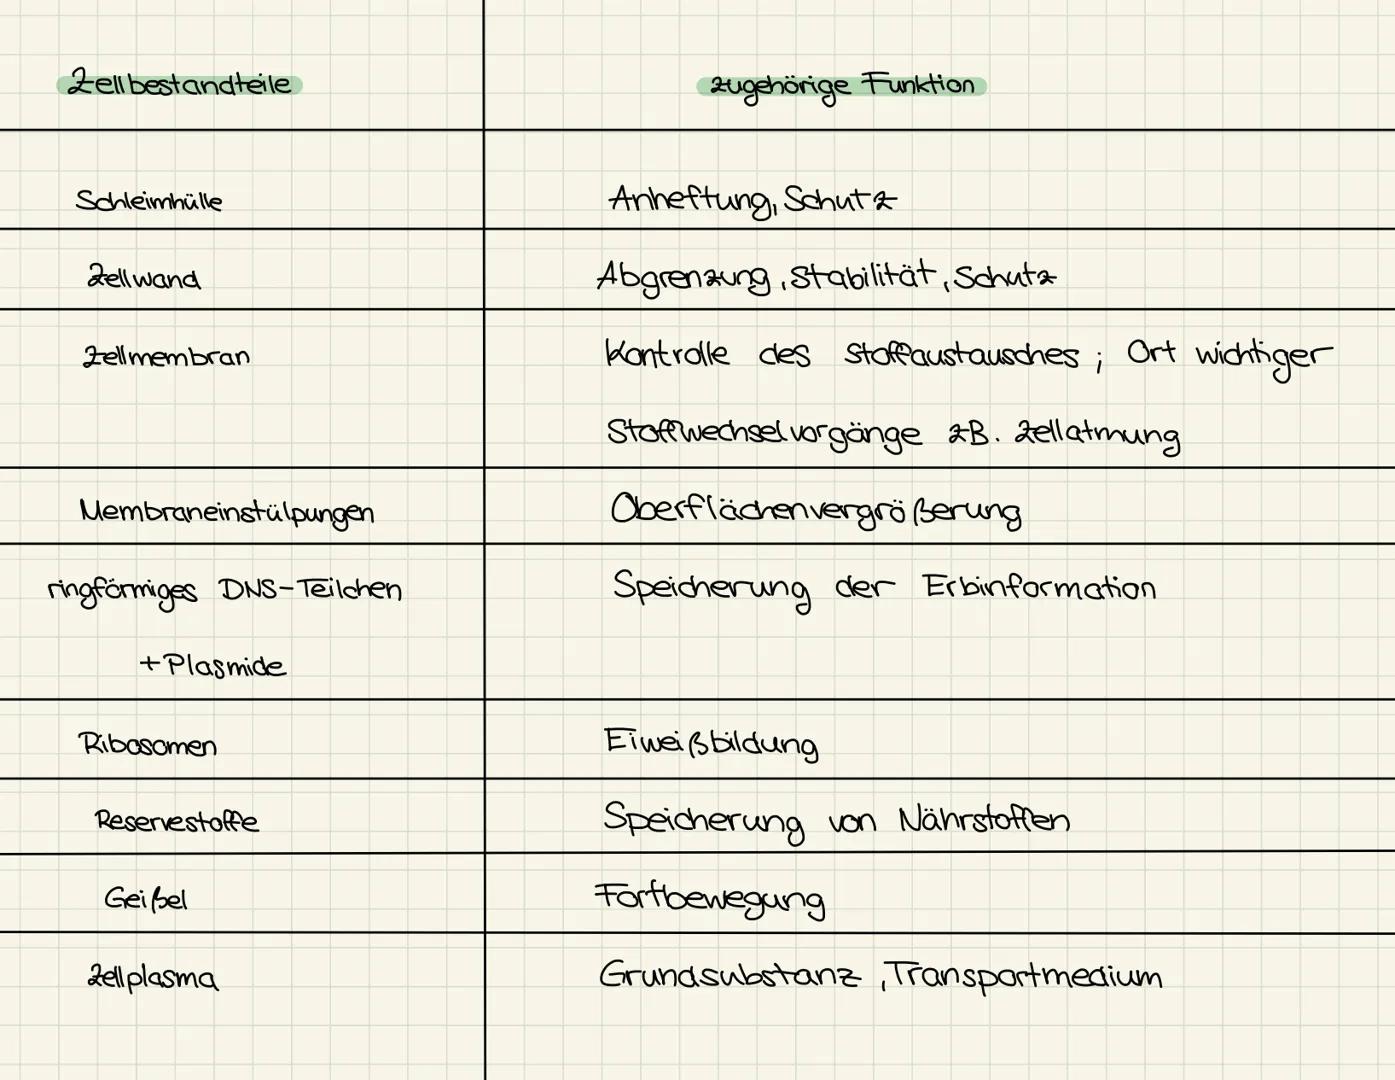 Zellbestandteile zugehörige Funktion
Schleimhülle Anheftung, Schutz
Zellwand Abgrenzung, Stabilität, Schutz
Zellmembran Kontrolle des Stoffaustausches ; Ort wichtiger
Stoffwechselvorgänge zB. Zellatmung
Membraneinstülpungen Oberflächenvergrößerung
ringförmiges DNS-Teilchen Speicherung der Erbinformation
+Plasmide
Ribosomen Eiweißbildung
Reservestoffe Speicherung von Nährstoffen
Geißel Fortbewegung
Zellplasma Grundsubstanz, Transportmedium